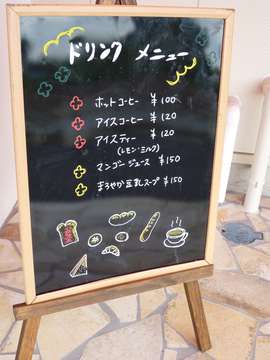 ドリンク メニュー
ホットコーヒー ¥100
アイスコーヒー ¥120
アイスティー ¥120
(レモン・ミルク)
マンゴージュース ¥150
まろやか豆乳スープ ¥150